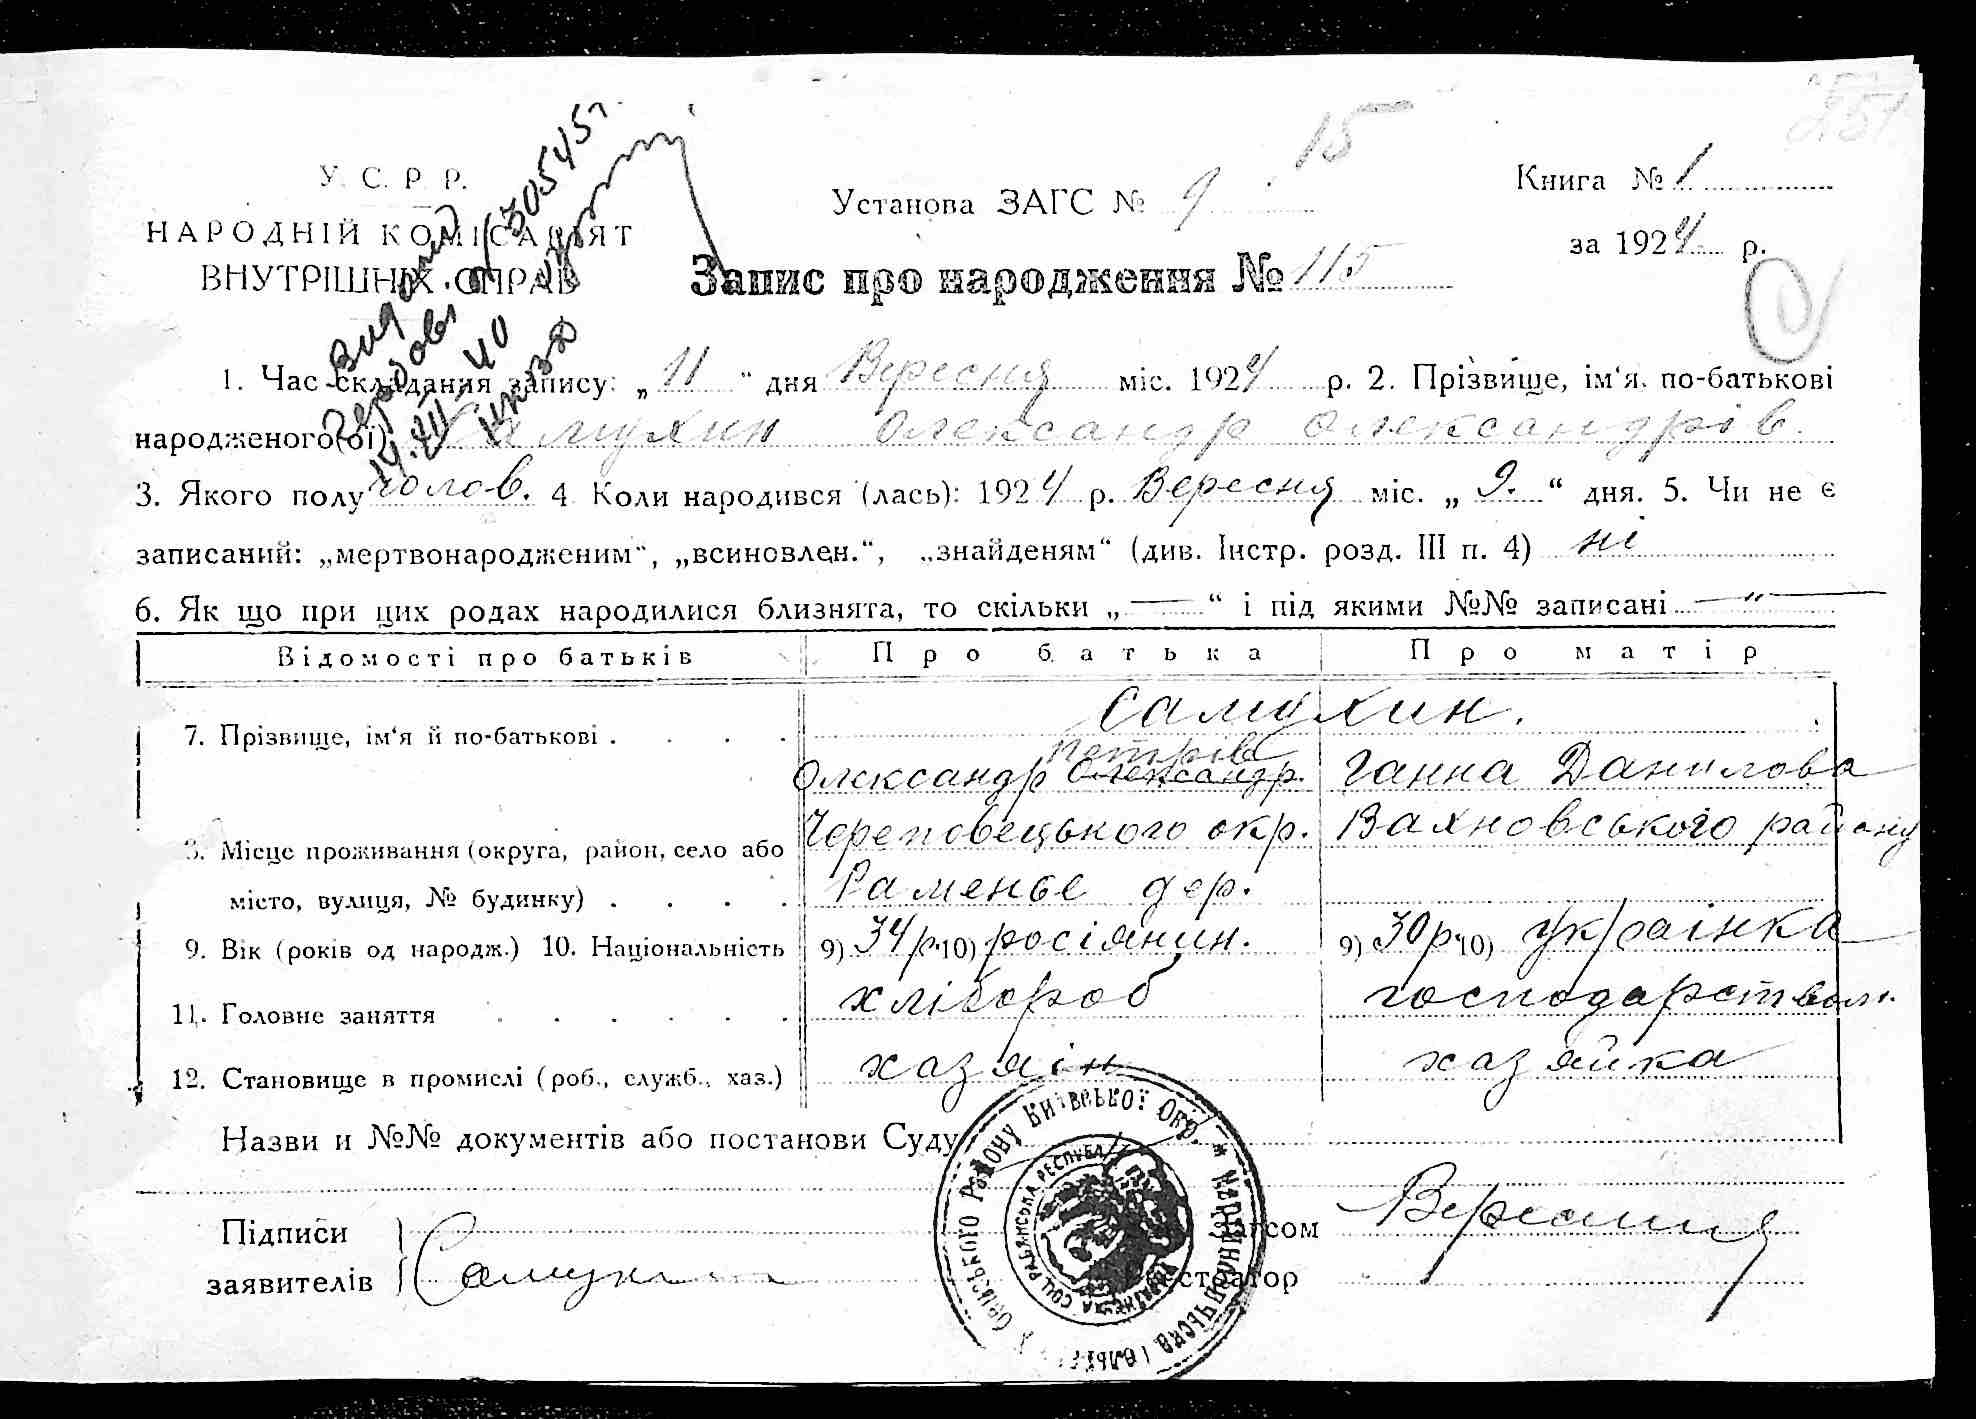 251
15
У. С. Р. Р.
НАРОДНІЙ КОМІСАРІЯТ
ВНУТРІШНІХ СПРАВ
Установа ЗАГС № 9
Книга № 1
за 1924 р.
Запис про народження № 115
1. Час складання запису: „11“ дня Вересня міс. 1924 р. 2. Прізвище, ім'я, по-батькові
народженого(ої) Самухин Олександр Олександрів.
3. Якого полу чолов. 4. Коли народився (лась): 1924 р. Вересня міс. „9.“ дня. 5. Чи не є
записаний: „мертвонародженим“, „всиновлен.“, „знайденям“ (див. Інстр. розд. III п. 4) ні
6. Як що при цих родах народилися близнята, то скільки „—“ і під якими №№ записані —"—
Відомості про батьків Про батька Про матір
7. Прізвище, ім'я й по-батькові . . . . Самухин.
Петрів
Олександр Олександр. Ганна Данилова
8. Місце проживання (округа, район, село або Череповецького окр. Вахновського району
місто, вулиця, № будинку) . . . . Раменье дер.
9. Вік (років од народж.) 10. Національність 9) 34 р. 10) росіянин. 9) 30 р. 10) українка
11. Головне заняття . . . . . . хлібороб господарством.
12. Становище в промислі (роб., служб., хаз.) хазяін хазяйка
Назви и №№ документів або постанови Суду
Підписи
заявителів Самухин
агсом
єстратор
Району Київської Окр. *